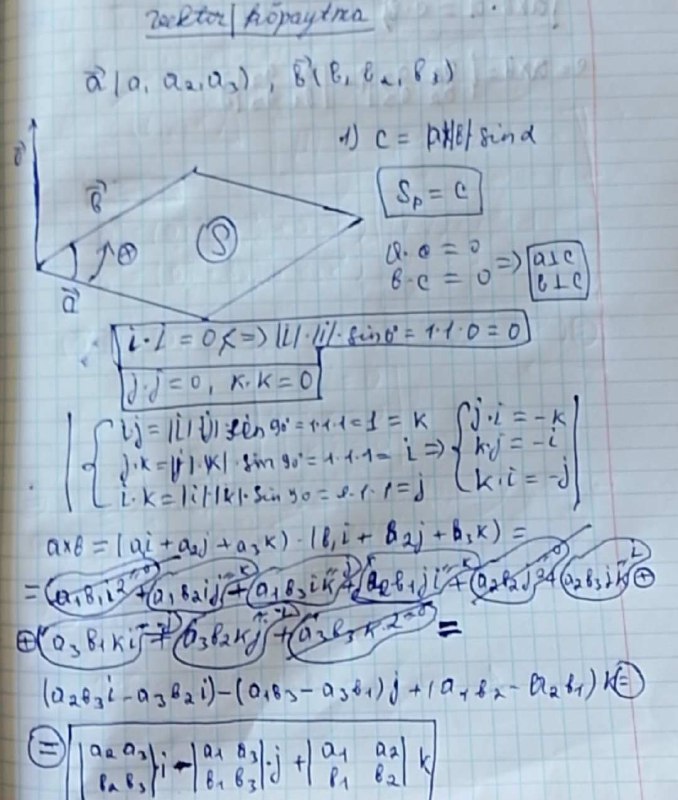 vektor| ko'paytma
a⃗ (a, a₂, a₃), b⃗ (b, b₂, b₃)
1) c = |a||b| sinα
c⃗
b⃗
Sₚ = c
S
a⃗
a·c = 0
b·c = 0 => a⊥c b⊥c
i·i = 0 <=> |i|·|i|·sin0° = 1·1·0 = 0
j·j = 0, k·k = 0
ij = |i| |j| sin90° = 1·1·1 = 1 = k
j·k = |j|·|k|·sin90° = 1·1·1 = i => j·i = -k
i·k = |i|·|k|·sin90 = 1·1·1 = j
k·j = -i
k·i = -j
a×b = (ai + a₂j + a₃k) · (b,i + b₂j + b₃k) =
= a₁b₁i² + a₁b₂ij + a₁b₃ik + a₂b₁ji + a₂b₂j² + a₂b₃jk ⊕
⊕ a₃b₁ki + a₃b₂kj + a₃b₃k² =
(a₂b₃i - a₃b₂i) - (a₁b₃ - a₃b₁)j + (a₁b₂ - a₂b₁)k =
= |a₂ a₃| i - |a₁ a₃| ·j + |a₁ a₂| k
|b₂ b₃| |b₁ b₃| |b₁ b₂|